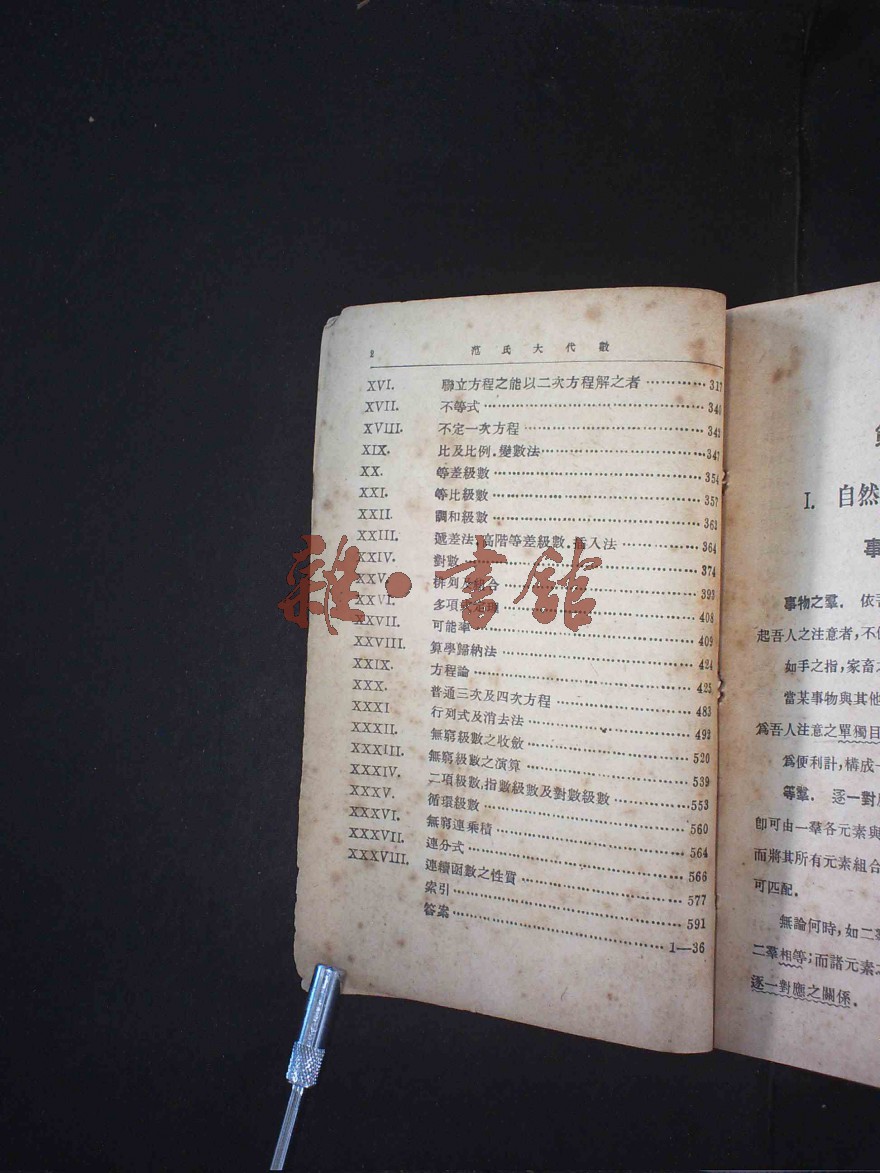 2 范氏大代數
XVI. 聯立方程之能以二次方程解之者 ………… 317
XVII. 不等式 ………… 340
XVIII. 不定一次方程 ………… 342
XIX. 比及比例.變數法 ………… 347
XX. 等差級數 ………… 354
XXI. 等比級數 ………… 357
XXII. 調和級數 ………… 362
XXIII. 遞差法.高階等差級數.插入法 ………… 364
XXIV. 對數 ………… 374
XXV. 排列及組合 ………… 393
XXVI. 多項式定理 ………… 408
XXVII. 可能率 ………… 409
XXVIII. 算學歸納法 ………… 424
XXIX. 方程論 ………… 425
XXX. 普通三次及四次方程 ………… 483
XXXI 行列式及消去法 ………… 492
XXXII. 無窮級數之收斂 ………… 520
XXXIII. 無窮級數之演算 ………… 539
XXXIV. 二項級數,指數級數及對數級數 ………… 553
XXXV. 循環級數 ………… 560
XXXVI. 無窮連乘積 ………… 564
XXXVII. 連分式 ………… 566
XXXVIII. 連續函數之性質 ………… 577
索引 ………… 591
答案 ………… 1—36
雜·書館
I. 自然
事
事物之羣. 依吾
起吾人之注意者,不
如手之指,家畜
當某事物與其他
爲吾人注意之單獨目
爲便利計,構成一
等羣. 逐一對
卽可由一羣各元素與
而將其所有元素組合
可匹配.
無論何時,如二羣
二羣相等;而諸元素
逐一對應之關係.